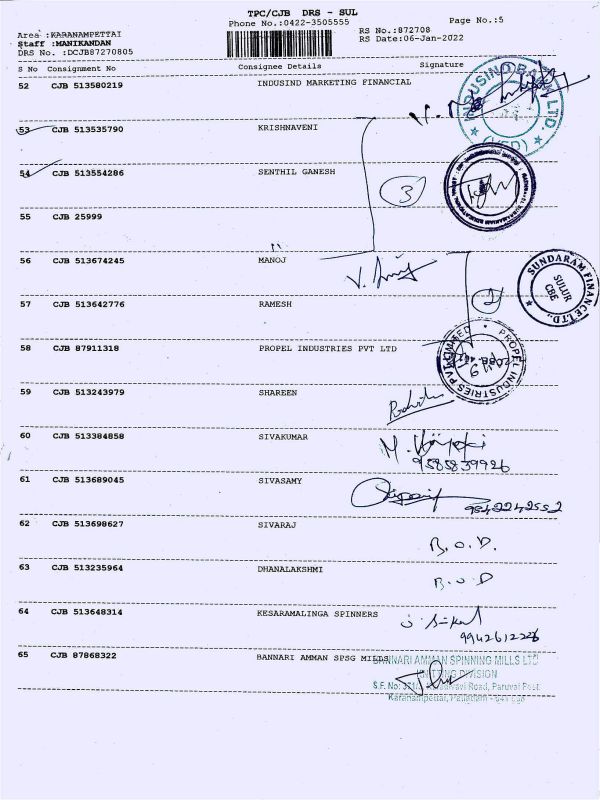 TPC/CJB DRS - SUL
Phone No.:0422-3505555 Page No.:5
Area :KARANAMPETTAI RS No.:872708
Staff :MANIKANDAN RS Date:06-Jan-2022
DRS No. :DCJB87270805
S No Consignment No Consignee Details Signature
52 CJB 513580219 INDUSIND MARKETING FINANCIAL
INDUSIND BANK LTD.
53 CJB 513535790 KRISHNAVENI
54 CJB 513554286 SENTHIL GANESH
3
55 CJB 25999
56 CJB 513674245 MANOJ
SUNDARAM FINANCE LTD.,
SULUR
CBE
57 CJB 513642776 RAMESH
2
58 CJB 87911318 PROPEL INDUSTRIES PVT LTD
PROPEL INDUSTRIES PVT LIMITED
59 CJB 513243979 SHAREEN
60 CJB 513384858 SIVAKUMAR
9585839926
61 CJB 513689045 SIVASAMY
9842242552
62 CJB 513698627 SIVARAJ
B.O.D.
63 CJB 513235964 DHANALAKSHMI
B.O.D
64 CJB 513648314 KESARAMALINGA SPINNERS
9942612226
65 CJB 87868322 BANNARI AMMAN SPSG MILLS
BANNARI AMMAN SPINNING MILLS LTD
KNITTING DIVISION
Road, Paruvai Post
Karanampettai, Palladam